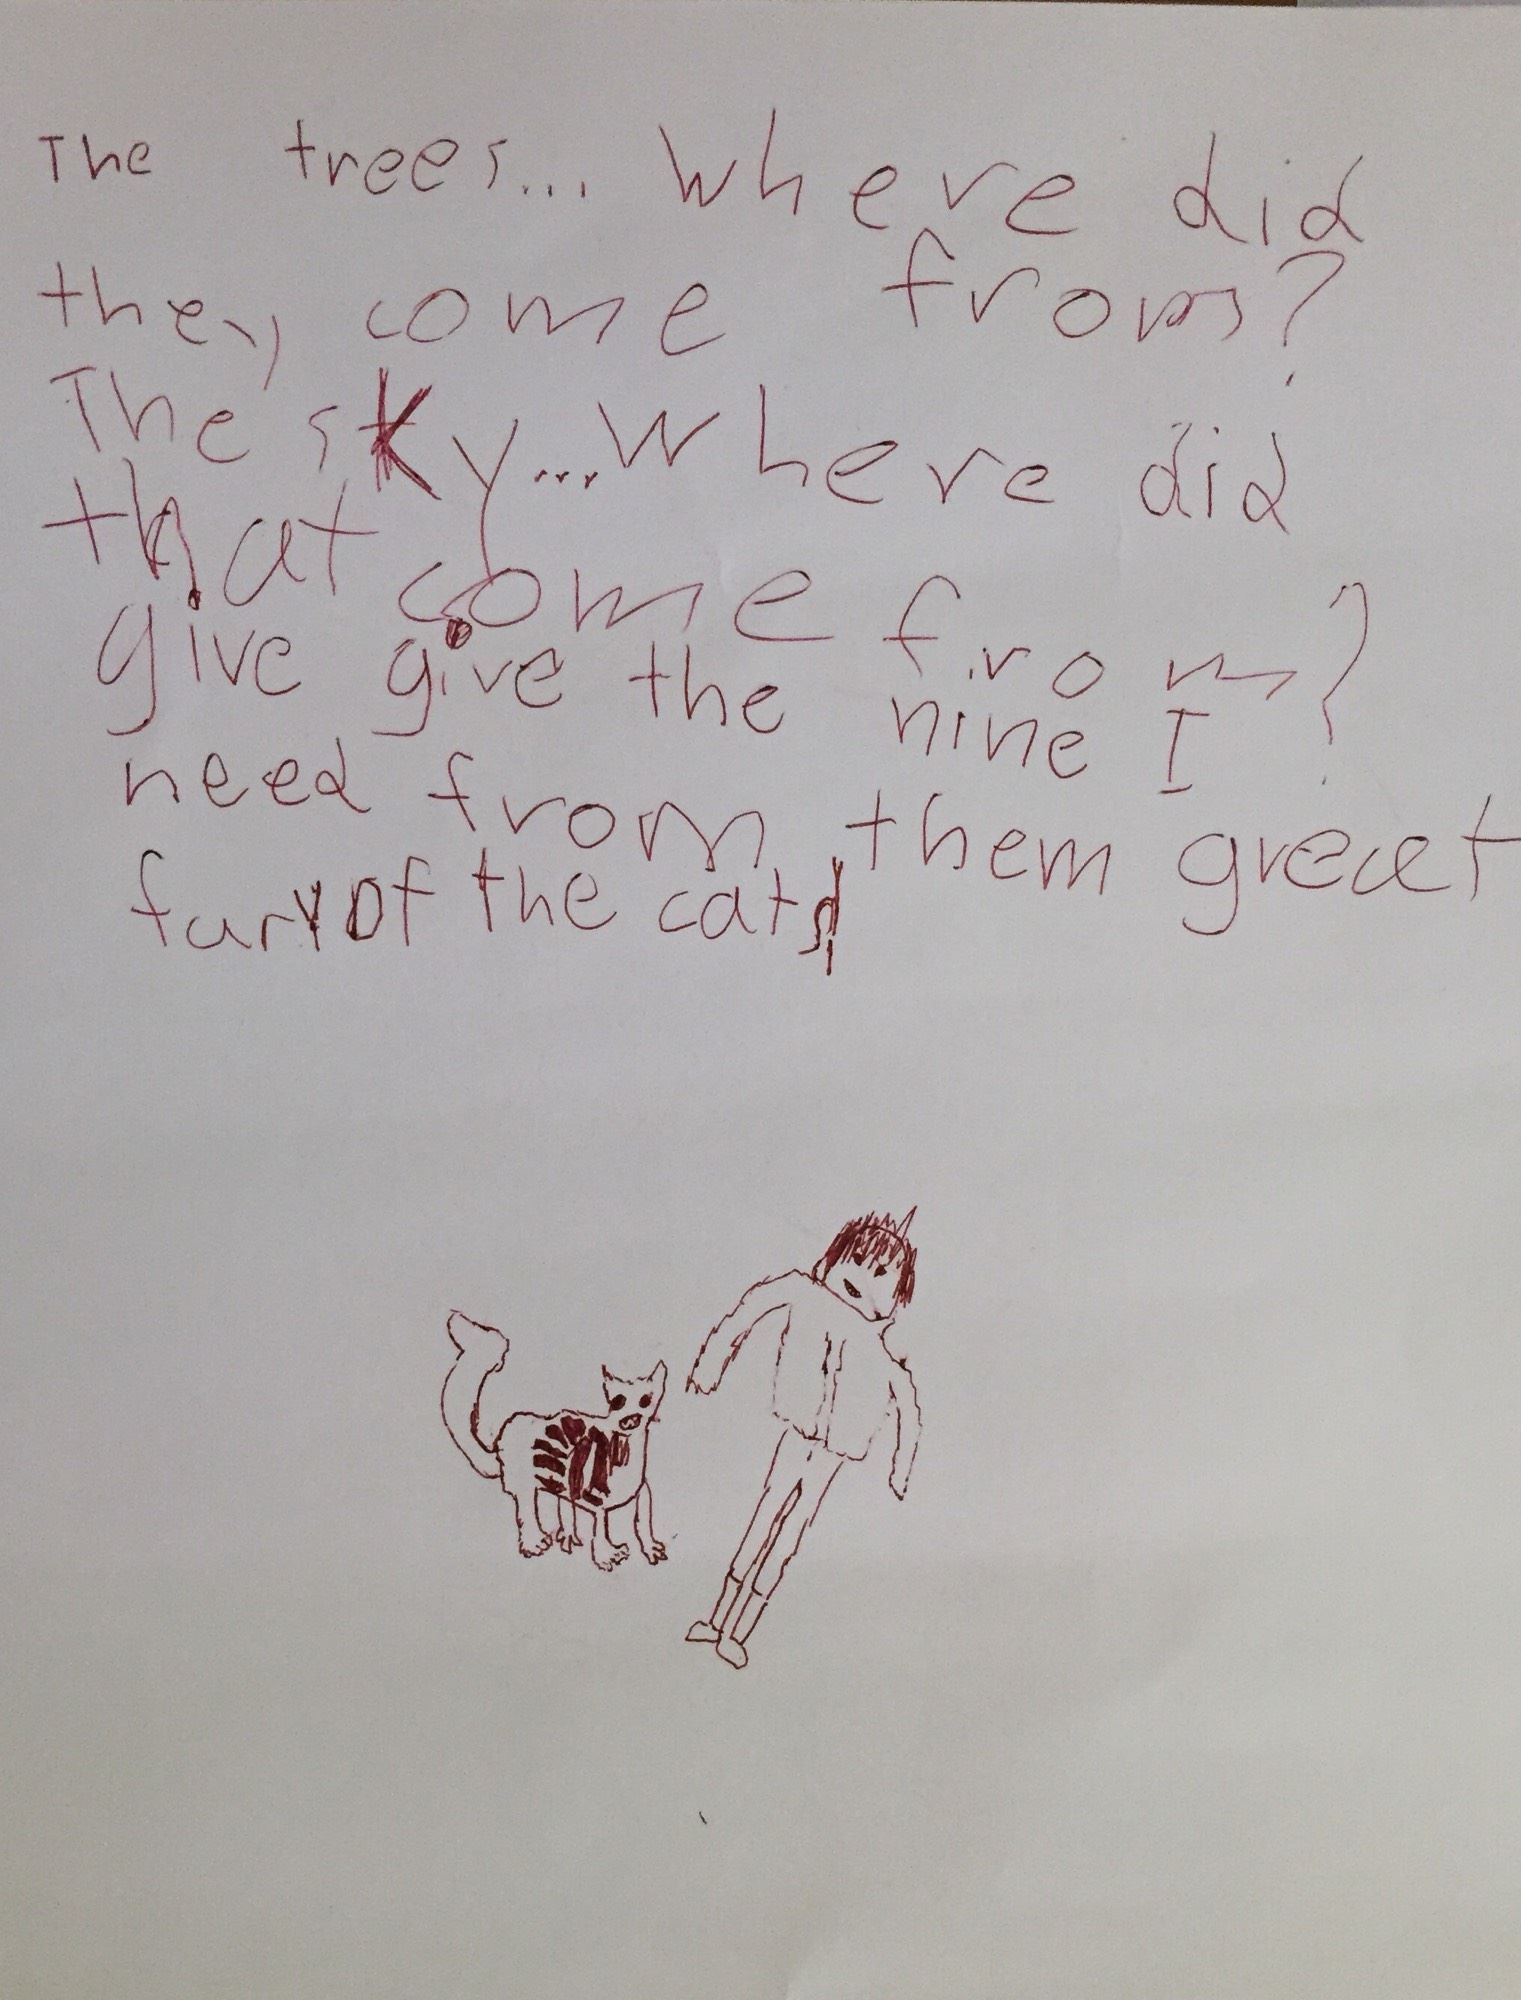 The trees... where did
they come from?
The sky...where did
that come from?
give give the nine I
need from them great
fury of the cats!